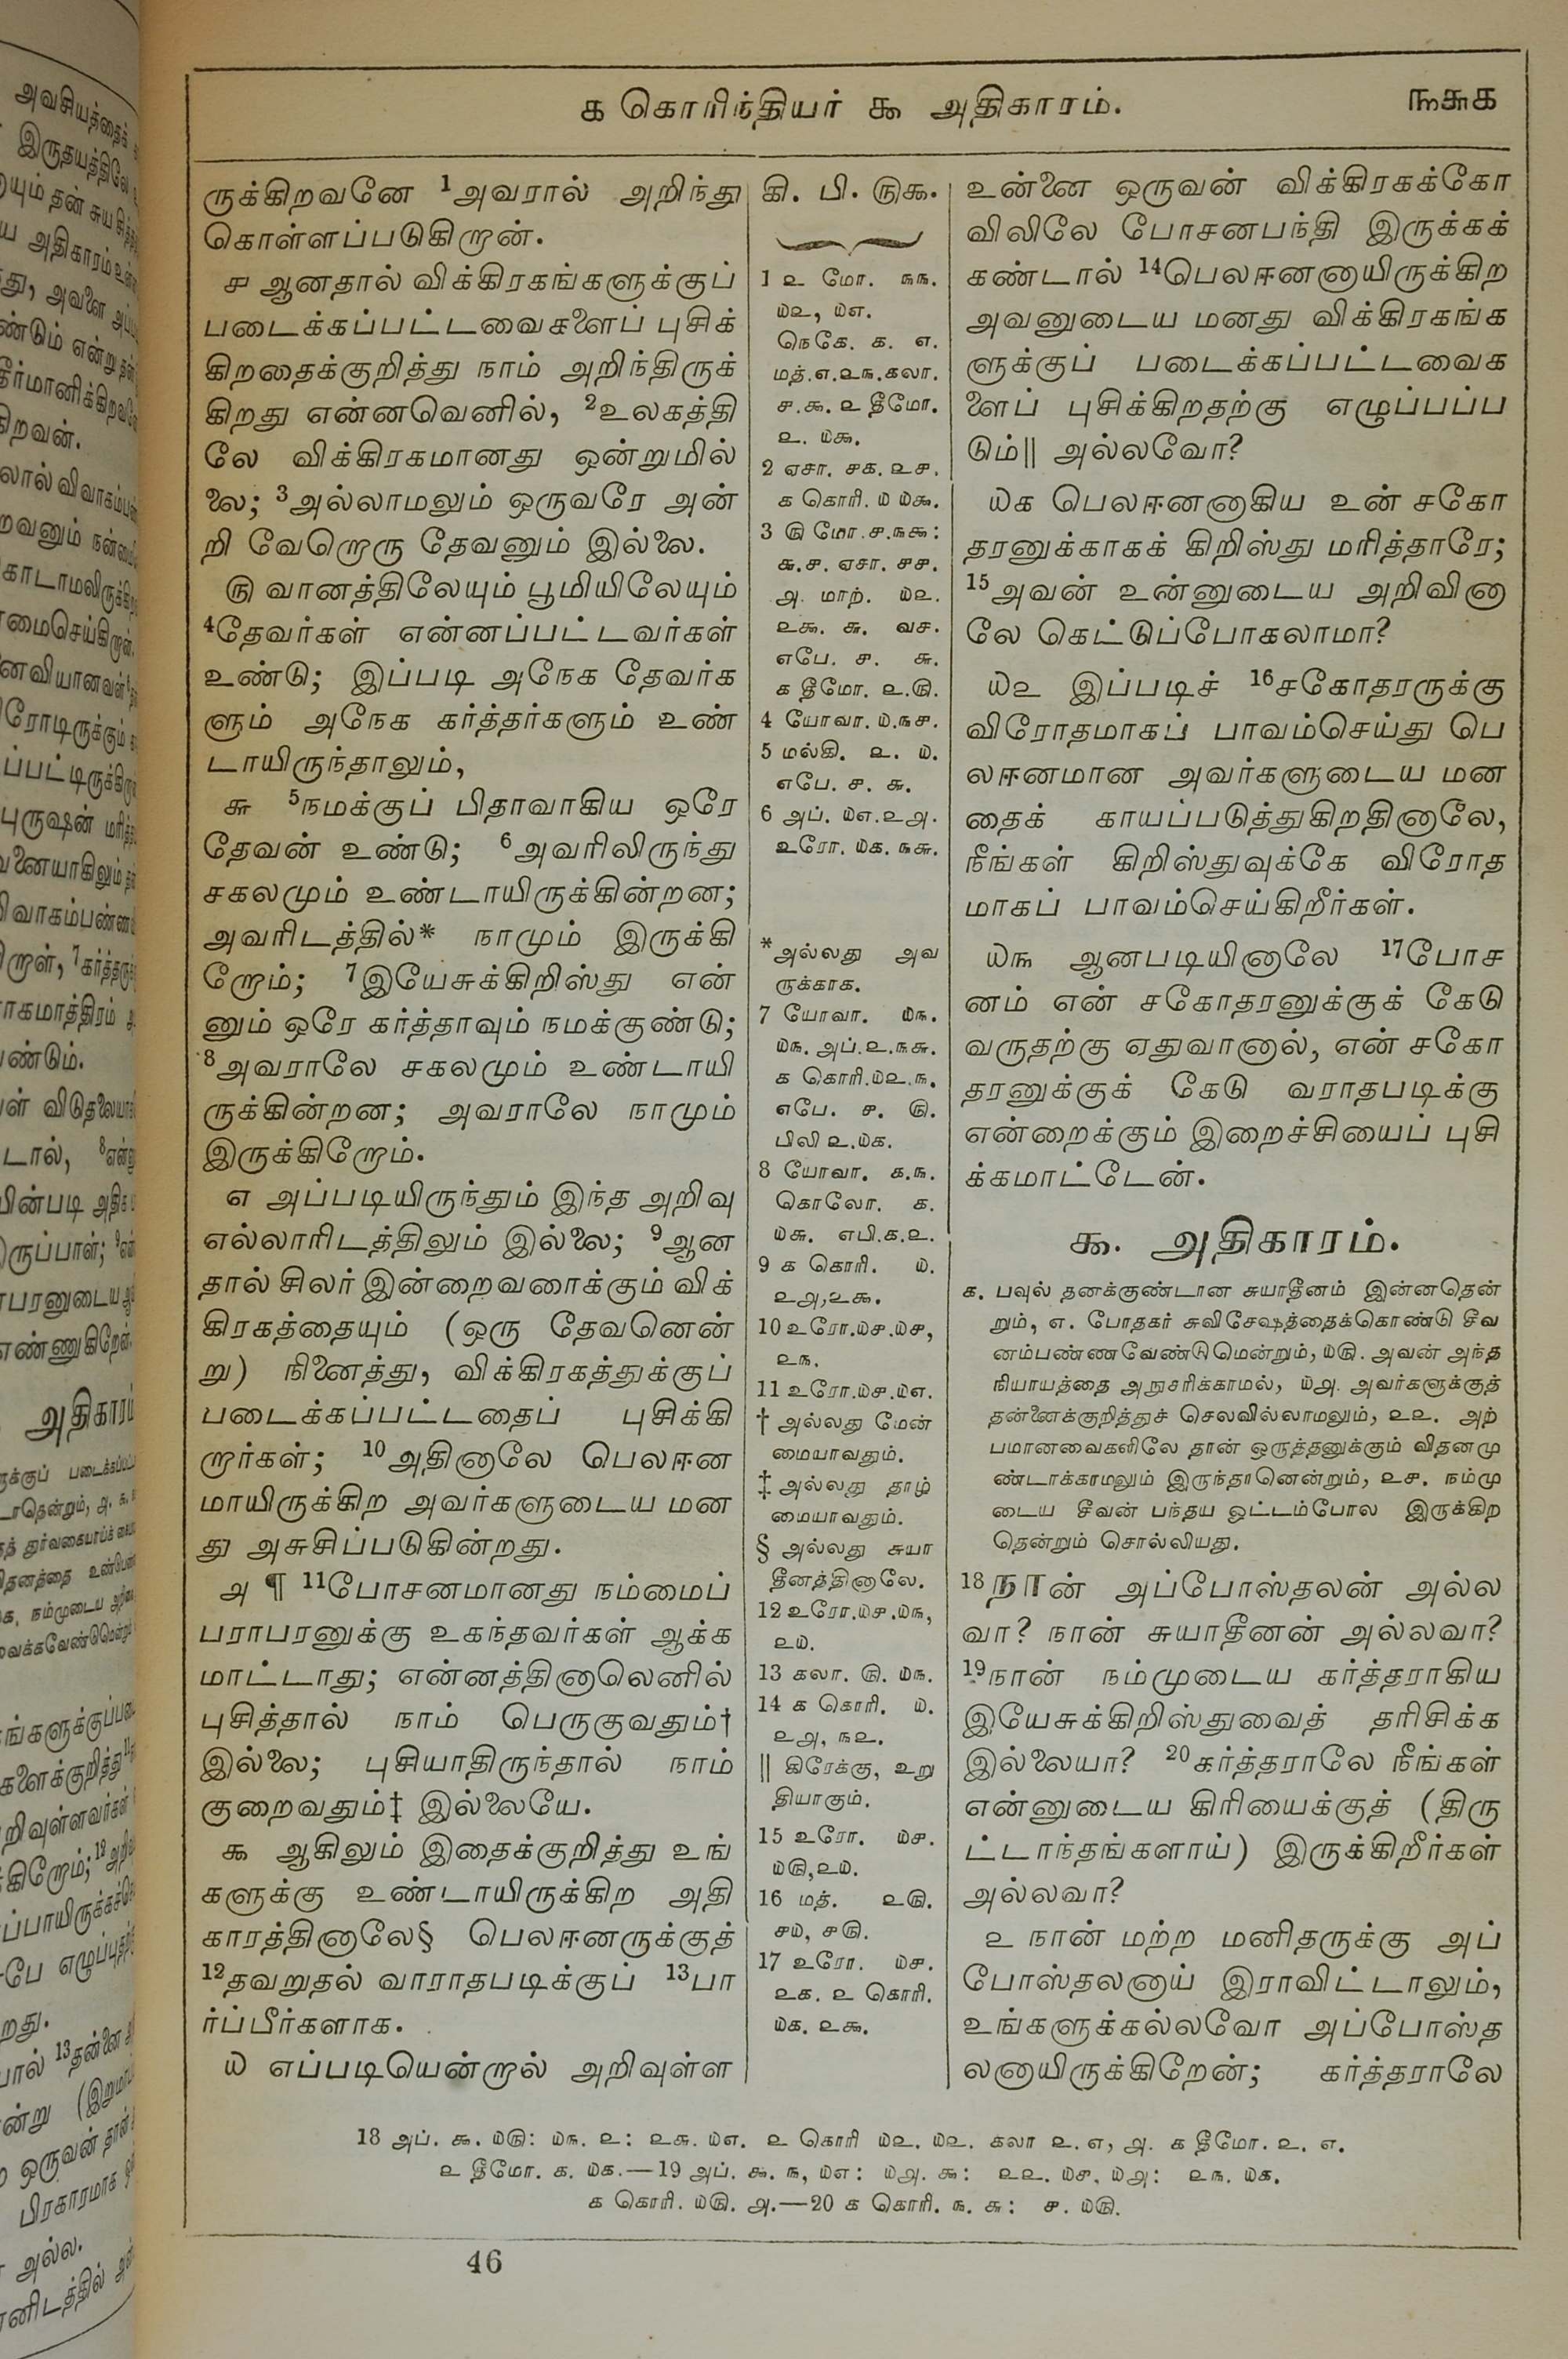 ௧ கொரிந்தியர் ௯ அதிகாரம்.
௩௬௧
ருக்கிறவனே 1அவரால் அறிந்து
கொள்ளப்படுகிறான்.
௪ ஆனதால் விக்கிரகங்களுக்குப்
படைக்கப்பட்டவைகளைப் புசிக்
கிறதைக்குறித்து நாம் அறிந்திருக்
கிறது என்னவெனில், 2உலகத்தி
லே விக்கிரகமானது ஒன்றுமில்
லை; 3அல்லாமலும் ஒருவரே அன்
றி வேறொரு தேவனும் இல்லை.
௫ வானத்திலேயும் பூமியிலேயும்
4தேவர்கள் என்னப்பட்டவர்கள்
உண்டு; இப்படி அநேக தேவர்க
ளும் அநேக கர்த்தர்களும் உண்
டாயிருந்தாலும்,
௬ 5நமக்குப் பிதாவாகிய ஒரே
தேவன் உண்டு; 6அவரிலிருந்து
சகலமும் உண்டாயிருக்கின்றன;
அவரிடத்தில்* நாமும் இருக்கி
றோம்; 7இயேசுக்கிறிஸ்து என்
னும் ஒரே கர்த்தாவும் நமக்குண்டு;
8அவராலே சகலமும் உண்டாயி
ருக்கின்றன; அவராலே நாமும்
இருக்கிறோம்.
௭ அப்படியிருந்தும் இந்த அறிவு
எல்லாரிடத்திலும் இல்லை; 9ஆன
தால் சிலர் இன்றைவரைக்கும் விக்
கிரகத்தையும் (ஒரு தேவனென்
று) நினைத்து, விக்கிரகத்துக்குப்
படைக்கப்பட்டதைப் புசிக்கி
றார்கள்; 10அதினாலே பெலஈன
மாயிருக்கிற அவர்களுடைய மன
து அசுசிப்படுகின்றது.
௮ ¶ 11போசனமானது நம்மைப்
பராபரனுக்கு உகந்தவர்கள் ஆக்க
மாட்டாது; என்னத்தினாலெனில்
புசித்தால் நாம் பெருகுவதும்†
இல்லை; புசியாதிருந்தால் நாம்
குறைவதும்‡ இல்லையே.
௯ ஆகிலும் இதைக்குறித்து உங்
களுக்கு உண்டாயிருக்கிற அதி
காரத்தினாலே§ பெலஈனருக்குத்
12தவறுதல் வாராதபடிக்குப் 13பா
ர்ப்பீர்களாக.
௰ எப்படியென்றால் அறிவுள்ள
கி. பி. ௫௯.
1 ௨ மோ. ௩௩.
௰௨, ௰௭.
நெகே. ௧. ௭.
மத்.௭.௨௩.கலா.
௪.௯. ௨ தீமோ.
௨. ௰௯.
2 ஏசா. ௪௧. ௨௪.
௧ கொரி. ௰ ௰௯.
3 ௫ மோ.௪.௩௯:
௬.௪. ஏசா. ௪௪.
௮ மாற். ௰௨.
௨௯. ௬. வச.
எபே. ௪. ௬.
௧ தீமோ. ௨.௫.
4 யோவா. ௰.௩௪.
5 மல்கி. ௨. ௰.
எபே. ௪. ௬.
6 அப். ௰௭.௨௮.
உரோ. ௰௧. ௩௬.
*அல்லது அவ
ருக்காக.
7 யோவா. ௰௩.
௰௩. அப்.௨.௩௬.
௧ கொரி.௰௨.௩.
எபே. ௪. ௫.
பிலி ௨.௰௧.
8 யோவா. ௧.௩.
கொலோ. ௧.
௰௬. எபி.௧.௨.
9 ௧ கொரி. ௰.
௨௮,௨௯.
10 உரோ.௰௪.௰௪,
௨௩.
11 உரோ.௰௪.௰௭.
† அல்லது மேன்
மையாவதும்.
‡ அல்லது தாழ்
மையாவதும்.
§ அல்லது சுயா
தீனத்தினாலே.
12 உரோ.௰௪.௰௩,
௨௰.
13 கலா. ௫. ௰௩.
14 ௧ கொரி. ௰.
௨௮, ௩௨.
|| கிரேக்கு, உறு
தியாகும்.
15 உரோ. ௰௪.
௰௫,௨௰.
16 மத். ௨௫.
௪௰, ௪௫.
17 உரோ. ௰௪.
௨௧. ௨ கொரி.
௰௧. ௨௯.
உன்னை ஒருவன் விக்கிரகக்கோ
விலிலே போசனபந்தி இருக்கக்
கண்டால் 14பெலஈனனாயிருக்கிற
அவனுடைய மனது விக்கிரகங்க
ளுக்குப் படைக்கப்பட்டவைக
ளைப் புசிக்கிறதற்கு எழுப்பப்ப
டும்|| அல்லவோ?
௰௧ பெலஈனனாகிய உன் சகோ
தரனுக்காகக் கிறிஸ்து மரித்தாரே;
15அவன் உன்னுடைய அறிவினா
லே கெட்டுப்போகலாமா?
௰௨ இப்படிச் 16சகோதரருக்கு
விரோதமாகப் பாவம்செய்து பெ
லஈனமான அவர்களுடைய மன
தைக் காயப்படுத்துகிறதினாலே,
நீங்கள் கிறிஸ்துவுக்கே விரோத
மாகப் பாவம்செய்கிறீர்கள்.
௰௩ ஆனபடியினாலே 17போச
னம் என் சகோதரனுக்குக் கேடு
வருதற்கு ஏதுவானால், என் சகோ
தரனுக்குக் கேடு வராதபடிக்கு
என்றைக்கும் இறைச்சியைப் புசி
க்கமாட்டேன்.
௯. அதிகாரம்.
௧. பவுல் தனக்குண்டான சுயாதீனம் இன்னதென்
றும், ௭. போதகர் சுவிசேஷத்தைக்கொண்டு சீவ
னம்பண்ணவேண்டுமென்றும், ௰௫. அவன் அந்த
நியாயத்தை அநுசரிக்காமல், ௰௮. அவர்களுக்குத்
தன்னைக்குறித்துச் செலவில்லாமலும், ௨௨. அற்
பமானவைகளிலே தான் ஒருத்தனுக்கும் விதனமு
ண்டாக்காமலும் இருந்தானென்றும், ௨௪. நம்மு
டைய சீவன் பந்தய ஓட்டம்போல இருக்கிற
தென்றும் சொல்லியது.
18நான் அப்போஸ்தலன் அல்ல
வா? நான் சுயாதீனன் அல்லவா?
19நான் நம்முடைய கர்த்தராகிய
இயேசுக்கிறிஸ்துவைத் தரிசிக்க
இல்லையா? 20கர்த்தராலே நீங்கள்
என்னுடைய கிரியைக்குத் (திரு
ட்டாந்தங்களாய்) இருக்கிறீர்கள்
அல்லவா?
௨ நான் மற்ற மனிதருக்கு அப்
போஸ்தலனாய் இராவிட்டாலும்,
உங்களுக்கல்லவோ அப்போஸ்த
லனாயிருக்கிறேன்; கர்த்தராலே
18 அப். ௯. ௰௫: ௰௩. ௨: ௨௬. ௰௭. ௨ கொரி ௰௨. ௰௨. கலா ௨. ௭, ௮. ௧ தீமோ. ௨. ௭.
௨ தீமோ. ௧. ௰௧.—19 அப். ௯. ௩, ௰௭: ௰௮. ௯: ௨௨. ௰௪, ௰௮: ௨௩. ௰௧.
௧ கொரி. ௰௫. ௮.—20 ௧ கொரி. ௩. ௬: ௪. ௰௫.
46